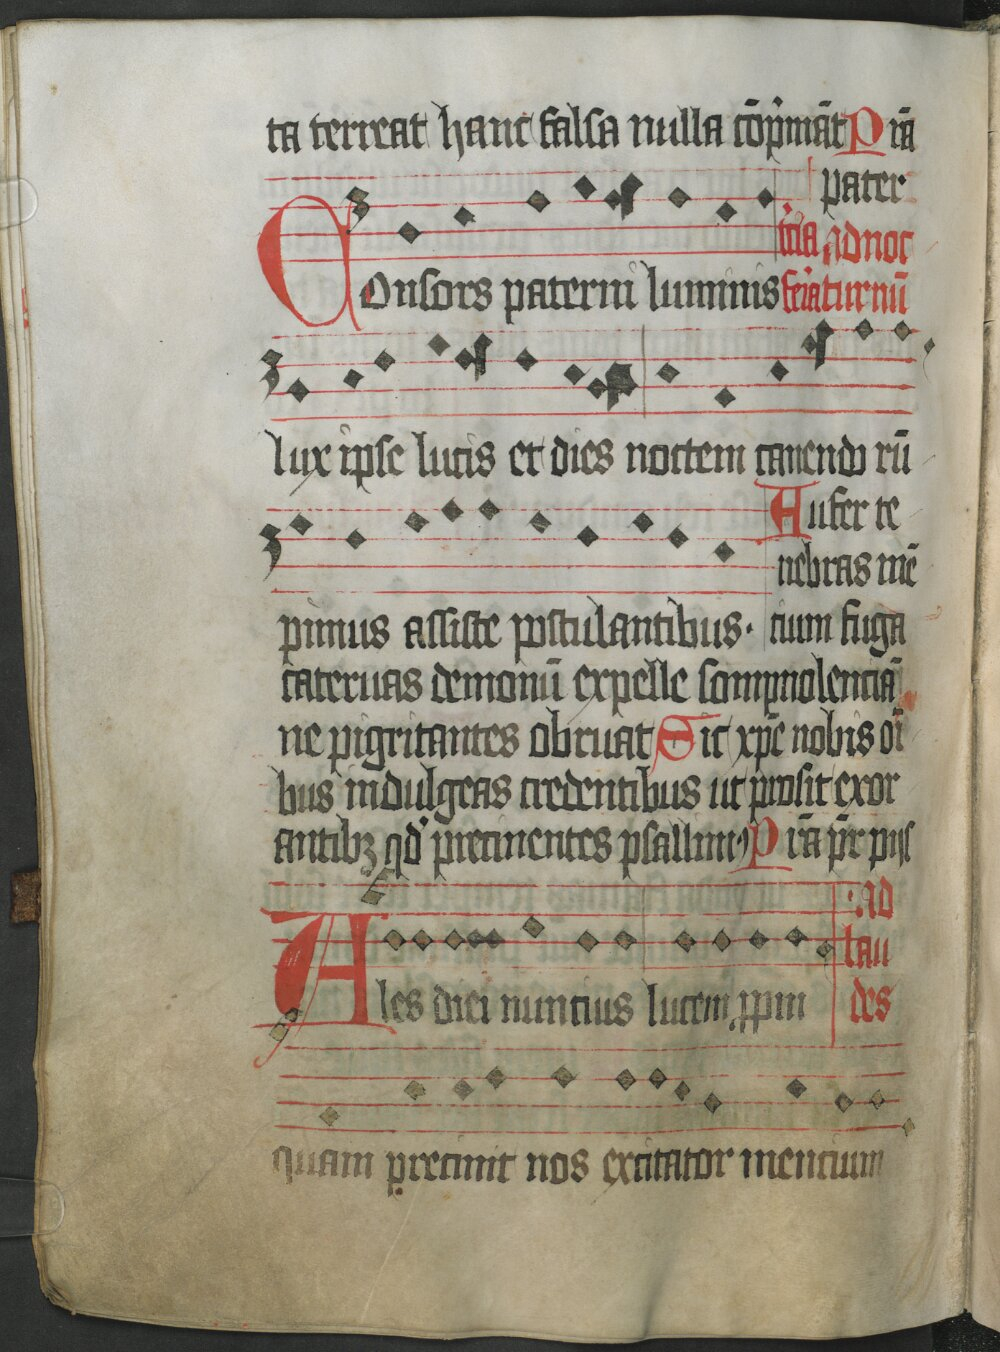 ta terreat hanc falsa nulla cōp̍māt P rā
pater
t̍cia ad noc
Consors paterni luminis fer̍a turnū
lux ipse lucis et dies noctem canendo rū
Aufer te
nebras mē
pimus assiste postulantibus. cium fuga
cateruas demonū expelle sompnolenciā
ne pigritantes obruat Sic xp̄e nobis oī
bus indulgeas credentibus ut prosit exor
antibꝫ qd̍ precinentes psallim⁹ P rā p̄r pijs
ad
lau
Ales diei nuncius lucem ꝓpin des
quam precinit nos excitator mencium